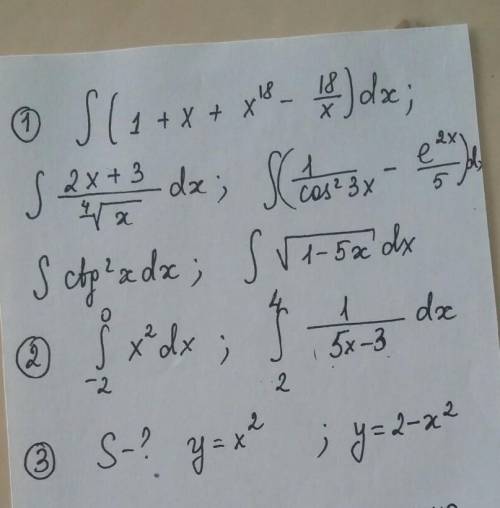 ① ∫(1 + x + x¹⁸ - 18/x)dx;
∫ (2x + 3)/⁴√x dx; ∫(1/cos²3x - e²ˣ/5)dx
∫ ctg²x dx; ∫ √(1-5x) dx
② ∫₋₂⁰ x² dx; ∫₂⁴ 1/(5x-3) dx
③ S-? y=x²; y=2-x²